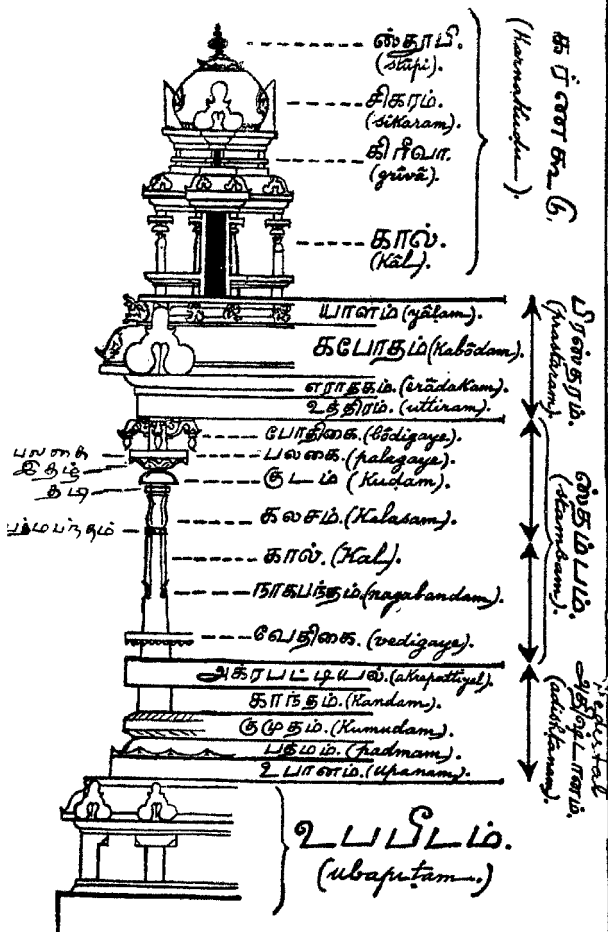 ஸ்தூபி.
(stūpi).
சிகரம்.
(sikaram).
கிரீவா.
(grīvā).
கால்.
(Kāl).
கர்ணகூடு.
(Karnakudu).
யாளம் (yāḷam).
கபோதம் (Kabōdam).
எராதகம். (ērādakam).
உத்திரம். (uttiram).
பிரஸ்தரம்.
(prastaram).
போதிகை. (bōdigaye).
பலகை. (palagaye).
குடம் (Kuḍam).
கலசம். (Kalasam).
கால். (Kal).
நாகபந்தம். (nagabandam).
வேதிகை. (vedigaye).
பலகை
இதழ்
தடி
பத்மபந்தம்
ஸ்தம்பம்.
(stambam).
அக்ரபட்டியல். (akrapattiyal).
காந்தம். (Kandam).
குமுதம். (Kumudam).
பத்மம். (padmam).
உபானம். (upanam).
அதிஷ்டானம்.
(adishtanam).
Pedestal
உபபிடம்.
(ubapiṭam.)